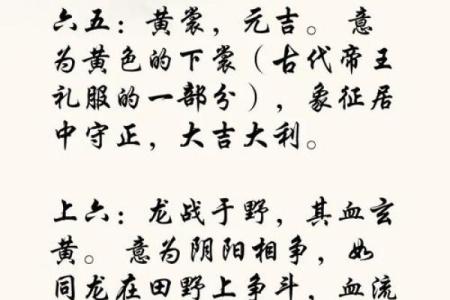 六五：黄裳，元吉。 意
为黄色的下裳（古代帝王
礼服的一部分），象征居
中守正，大吉大利。
上六：龙战于野，其血玄
黄。 意为阴阳相争，如
同龙在田野上争斗，血流